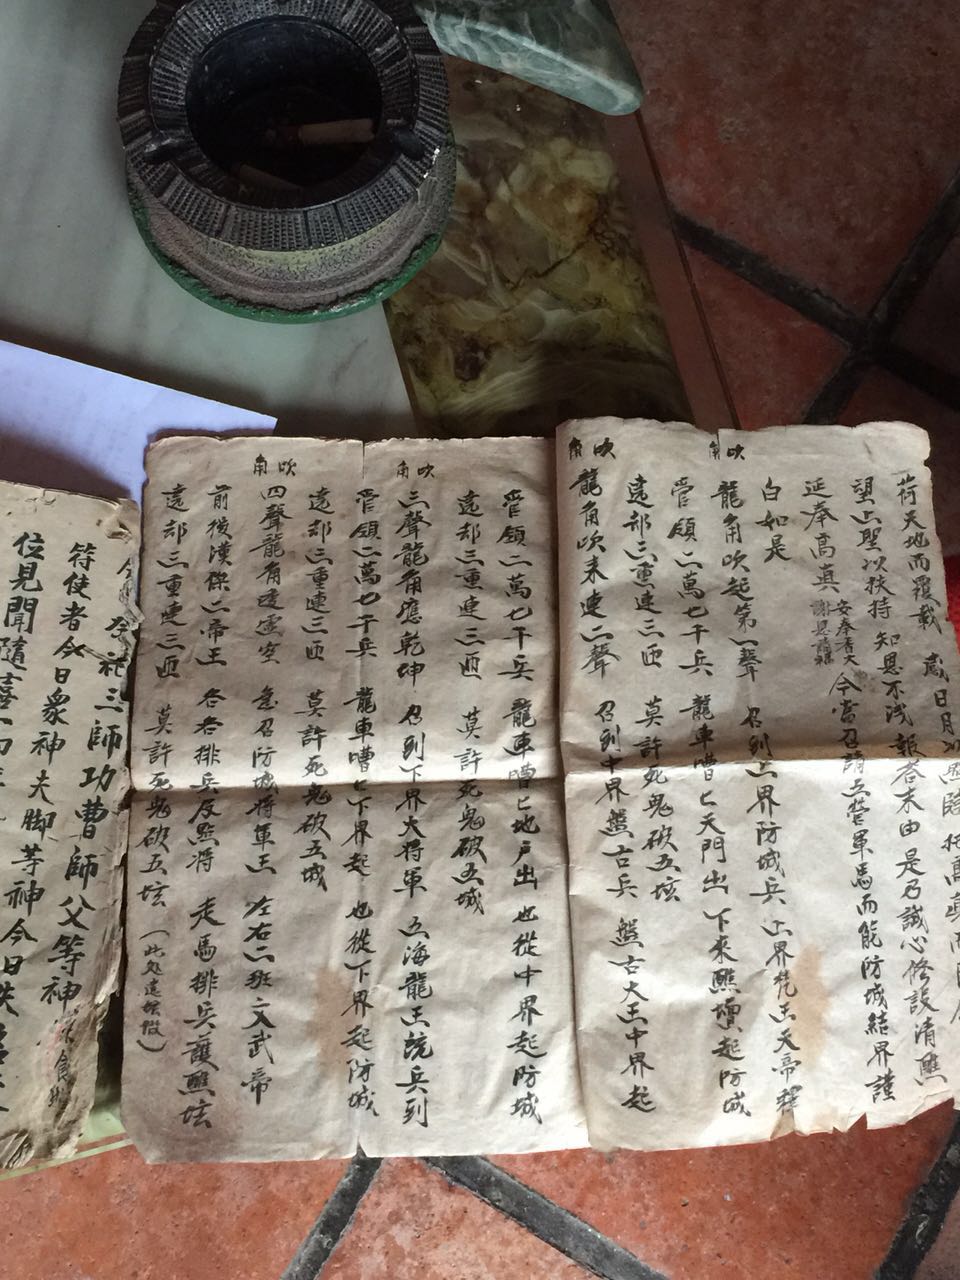 荷天地而覆載 感日月
望上聖以扶持 知恩不浅 報答末由 是乃誠心修設清醮
延奉高真 安奉者大 謝恩 今當召請五营軍馬而能防城結界謹
白如是
吹角
龍角吹起第一聲 召到上界防城兵 上界梵王天帝釋
管領二萬七千兵 龍車嘈匕天門出 下來醮壇起防城
遶部三重連三匝 莫許死鬼破五坛
吹角
龍角吹来連二聲 召到中界盤古兵 盤古大王中界起
管領二萬七千兵 龍車嘈匕地户出 也從中界起防城
遶部三重連三匝 莫許死鬼破五城
吹角
三聲龍角應乾坤 召到下界大将軍 五海龍王統兵到
管領二萬七千兵 龍車嘈匕下界起 也從下界起防城
遶部三重連三匝 莫許死鬼破五城
吹角
四聲龍角透虚空 急召防城将軍王 左右二班文武帝
前後漢傑二帝王 各各排兵及點将 走馬排兵護醮坛
遶部三重連三匝 莫許死鬼破五坛
祀三師功曹師父等神
符使者今日衆神夫脚等神
位見聞隨喜 神今日